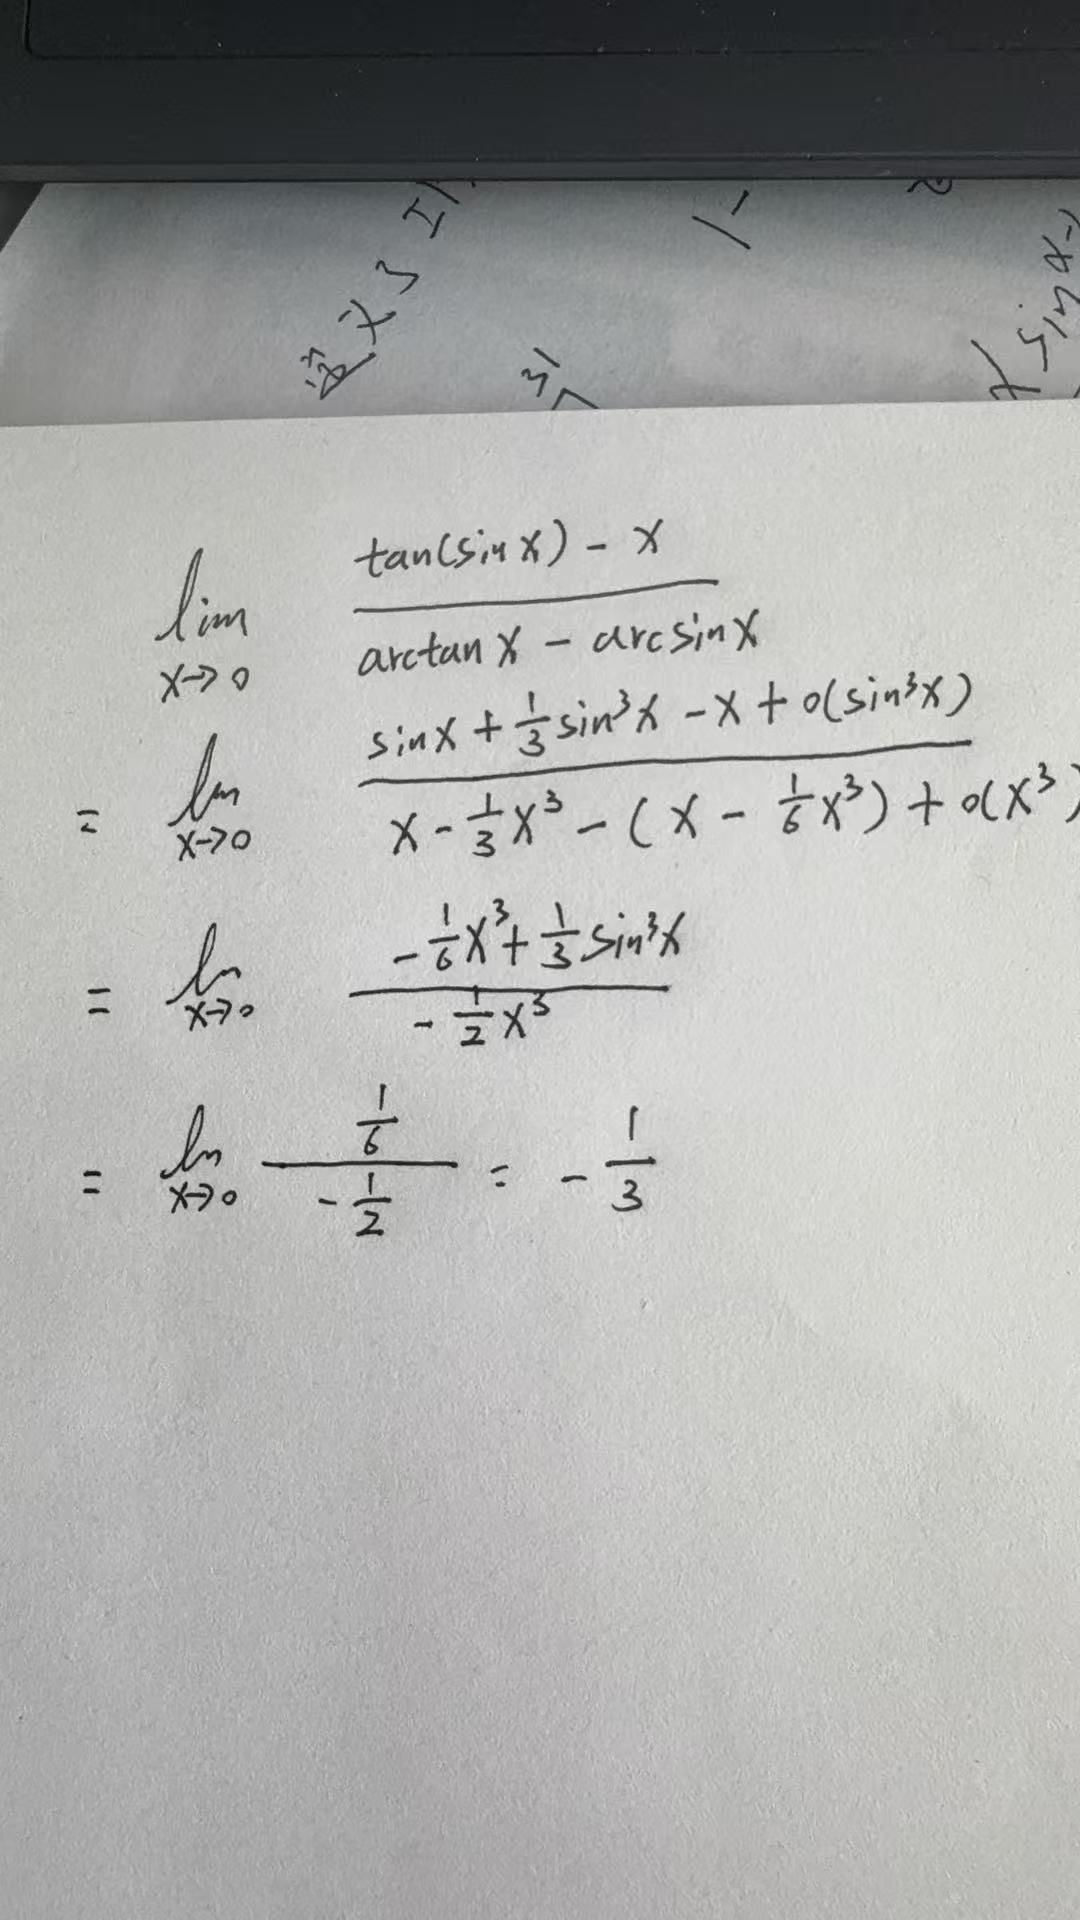 x 3
3
x sin x -
lim x→0 (tan(sin x) - x) / (arctan x - arcsin x)
= lim x→0 (sin x + 1/3 sin³x - x + o(sin³x)) / (x - 1/3 x³ - (x - 1/6 x³) + o(x³)
= lim x→0 (-1/6 x³ + 1/3 sin³x) / (-1/2 x³)
= lim x→0 (1/6) / (-1/2) = -1/3